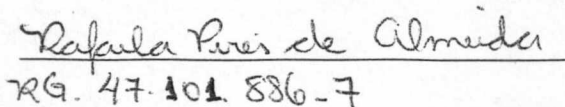 Rafaela Pires de Almeida
RG. 47.101.886-7